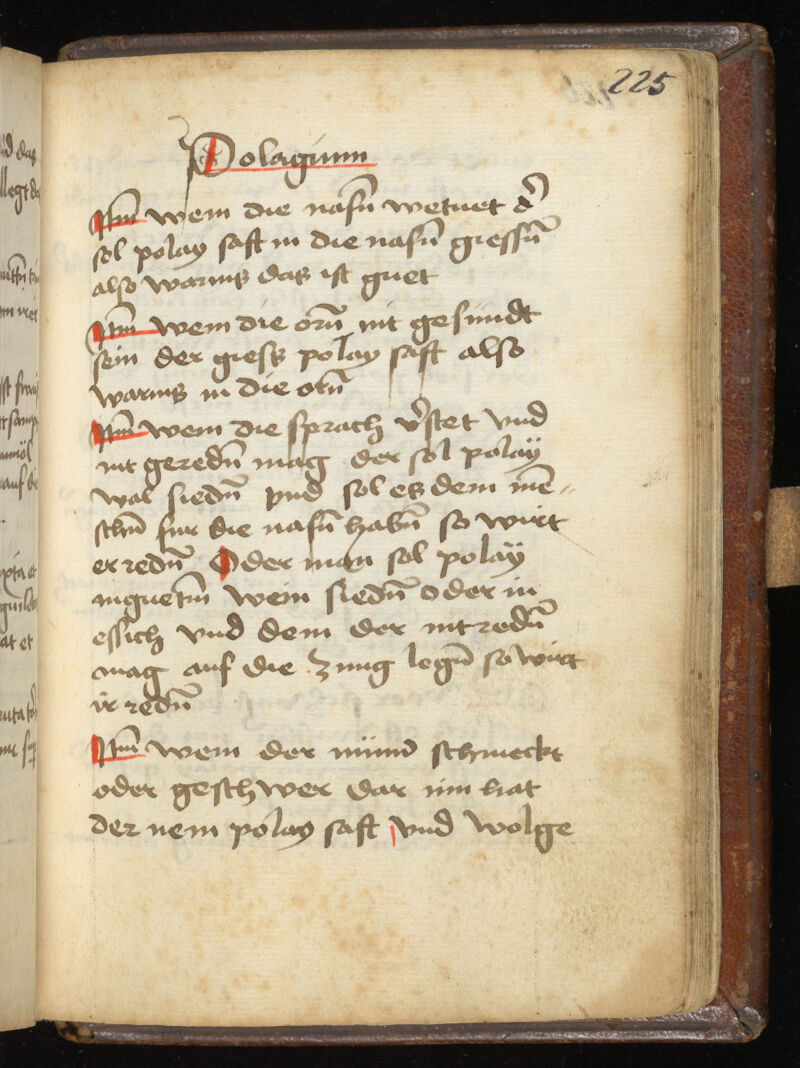 225
Polagium
Itm̄ wem die nasn̄ wetuet d̾
sol polay saft in die nasn̄ giessn̄
also warms das ist guet
Itm̄ wem die orn̄ nit gesundt
sein der giess polay saft also
warms in die orn̄
Itm̄ wem die sprach v̾stet vnd
nit geredn̄ mag der sol polaÿ
wal siedn̄ vnd sol es dem men̄
schn̄ fur die nasn̄ habn̄ so wirt
er redn̄ Oder man sol polaÿ
in guetm̄ wein siedn̄ oder in
essich vnd dem der nit redn̄
mag auf die zung legn̄ so wirt
ir redn̄
Itm̄ wem der mund schmeckt
oder geschwer dar inn hat
der nem polay saft vnd wolge